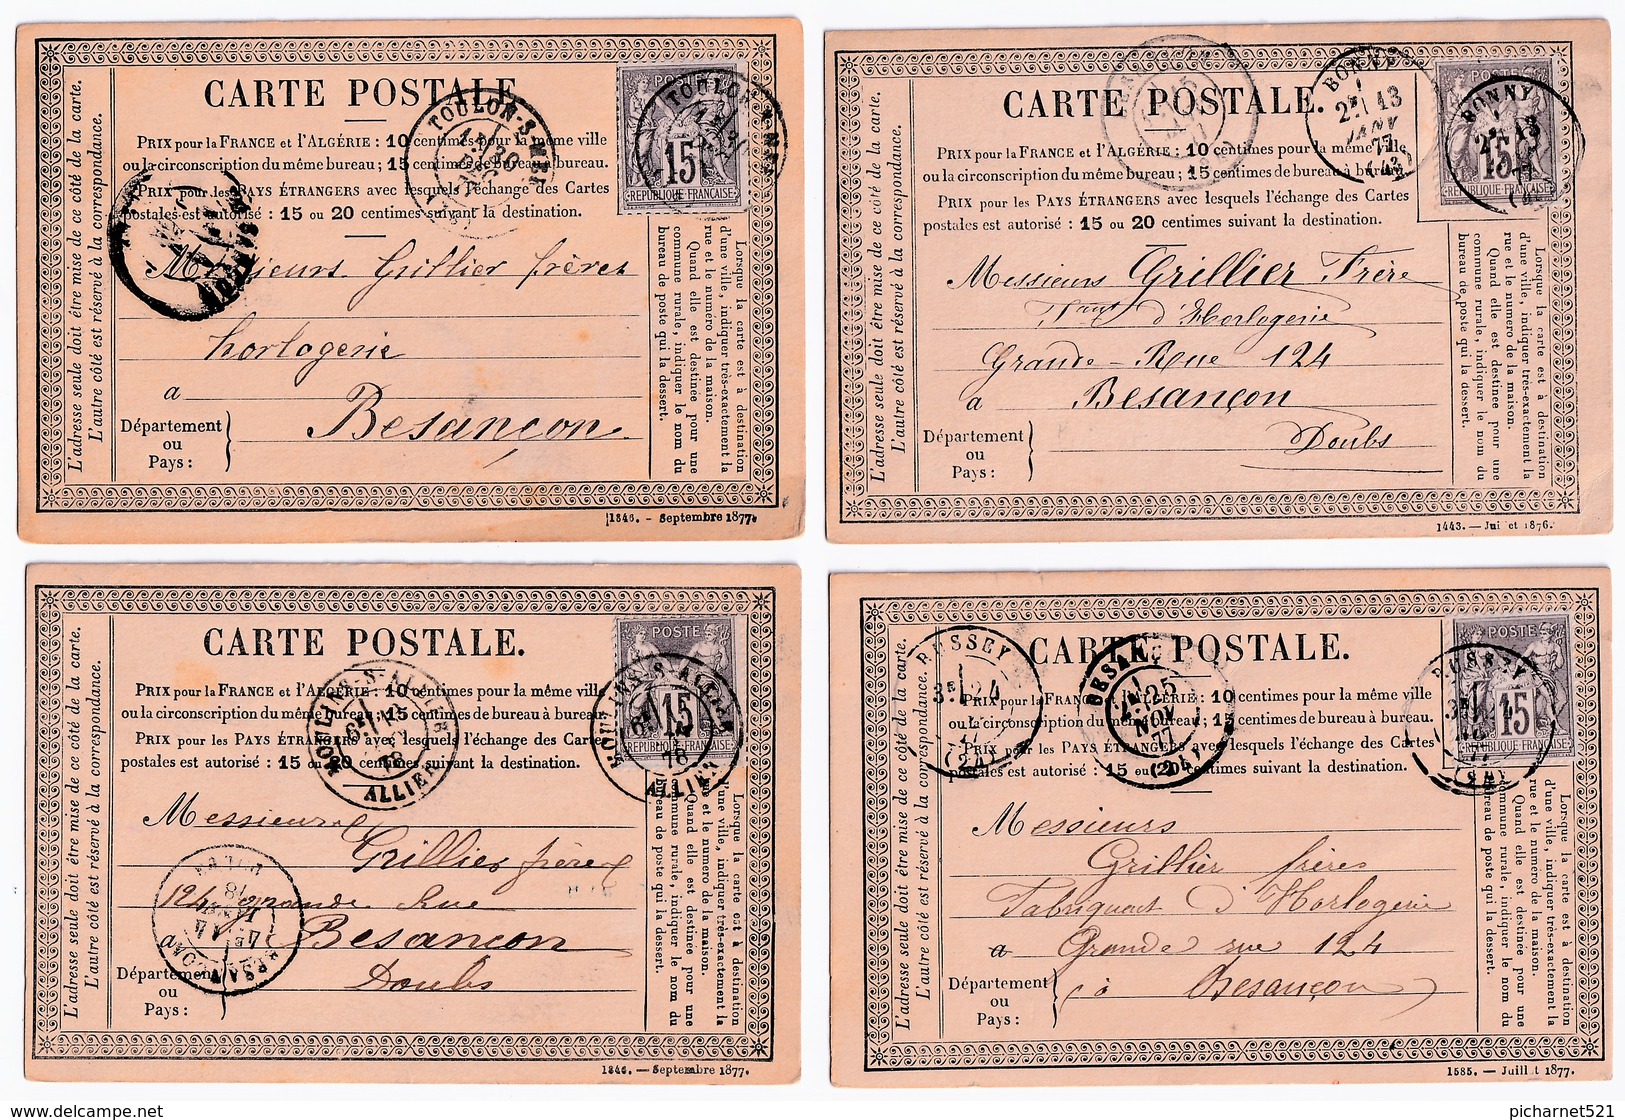 CARTE POSTALE.
PRIX pour la FRANCE et l'ALGÉRIE : 10 centimes pour la même ville
ou la circonscription du même bureau ; 15 centimes de bureau à bureau.
PRIX pour les PAYS ÉTRANGERS avec lesquels l'échange des Cartes
postales est autorisé : 15 ou 20 centimes suivant la destination.
L'adresse seule doit être mise de ce côté de la carte.
L'autre côté est réservé à la correspondance.
POSTE
15
REPUBLIQUE FRANÇAISE
TOULON-S-MER
Messieurs Grillier frères
horlogerie
a Besançon
Département
ou
Pays :
Lorsque la carte est à destination
d'une ville, indiquer très-exactement la
rue et le numéro de la maison.
Quand elle est destinée pour une
commune rurale, indiquer le nom du
bureau de poste qui la dessert.
1846. - Septembre 1877.
CARTE POSTALE.
PRIX pour la FRANCE et l'ALGÉRIE : 10 centimes pour la même ville
ou la circonscription du même bureau ; 15 centimes de bureau à bureau.
PRIX pour les PAYS ÉTRANGERS avec lesquels l'échange des Cartes
postales est autorisé : 15 ou 20 centimes suivant la destination.
L'adresse seule doit être mise de ce côté de la carte.
L'autre côté est réservé à la correspondance.
BONNY
2E 13
JANV
77
(43)
POSTE
15
REPUBLIQUE FRANÇAISE
BONNY
Messieurs Grillier Frère
Fant d'Horlogerie
Grande-Rue 124
a Besançon
Doubs
Département
ou
Pays :
Lorsque la carte est à destination
d'une ville, indiquer très-exactement la
rue et le numéro de la maison.
Quand elle est destinée pour une
commune rurale, indiquer le nom du
bureau de poste qui la dessert.
1443. — Jui et 1876.
CARTE POSTALE.
PRIX pour la FRANCE et l'ALGÉRIE : 10 centimes pour la même ville
ou la circonscription du même bureau ; 15 centimes de bureau à bureau.
PRIX pour les PAYS ÉTRANGERS avec lesquels l'échange des Cartes
postales est autorisé : 15 ou 20 centimes suivant la destination.
L'adresse seule doit être mise de ce côté de la carte.
L'autre côté est réservé à la correspondance.
MOULINS-S-ALLIER
78
ALLIER
POSTE
15
REPUBLIQUE FRANÇAISE
Messieurs
Grillier frères
124 grande Rue
a Besançon
Doubs
BESANÇON
Département
ou
Pays :
Lorsque la carte est à destination
d'une ville, indiquer très-exactement la
rue et le numéro de la maison.
Quand elle est destinée pour une
commune rurale, indiquer le nom du
bureau de poste qui la dessert.
1846. — Septembre 1877.
CARTE POSTALE.
PRIX pour la FRANCE et l'ALGÉRIE : 10 centimes pour la même ville
ou la circonscription du même bureau ; 15 centimes de bureau à bureau.
PRIX pour les PAYS ÉTRANGERS avec lesquels l'échange des Cartes
postales est autorisé : 15 ou 20 centimes suivant la destination.
L'adresse seule doit être mise de ce côté de la carte.
L'autre côté est réservé à la correspondance.
RUSSEY
3E 24
(24)
BESANÇON
25
NOV
77
(24)
POSTE
15
REPUBLIQUE FRANÇAISE
Messieurs
Grillier frères
Fabriquant d'Horlogerie
a Grande rue 124
à Besançon
Département
ou
Pays :
Lorsque la carte est à destination
d'une ville, indiquer très-exactement la
rue et le numéro de la maison.
Quand elle est destinée pour une
commune rurale, indiquer le nom du
bureau de poste qui la dessert.
1585. — Juill t 1877.
picharnet521